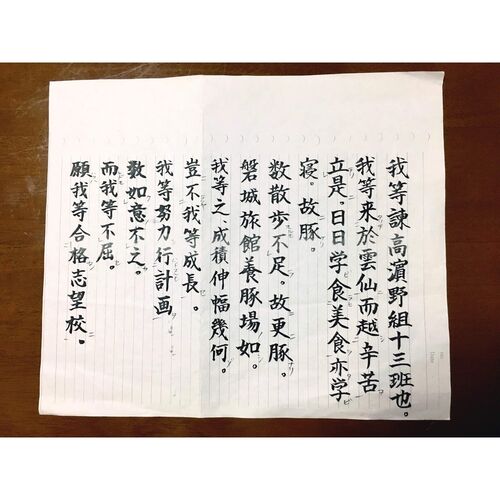 我等諌高濵野組十三班也。
我等来於雲仙而越辛苦
立是。日日学食美食亦学
寝。故豚。
数散歩不足。故更豚。
磐城旅館養豚場如。
我等之、成積伸幅幾何。
豈不我等成長。
我等努力行計画
数如意不之。
而我等不屈。
願我等合格志望校。